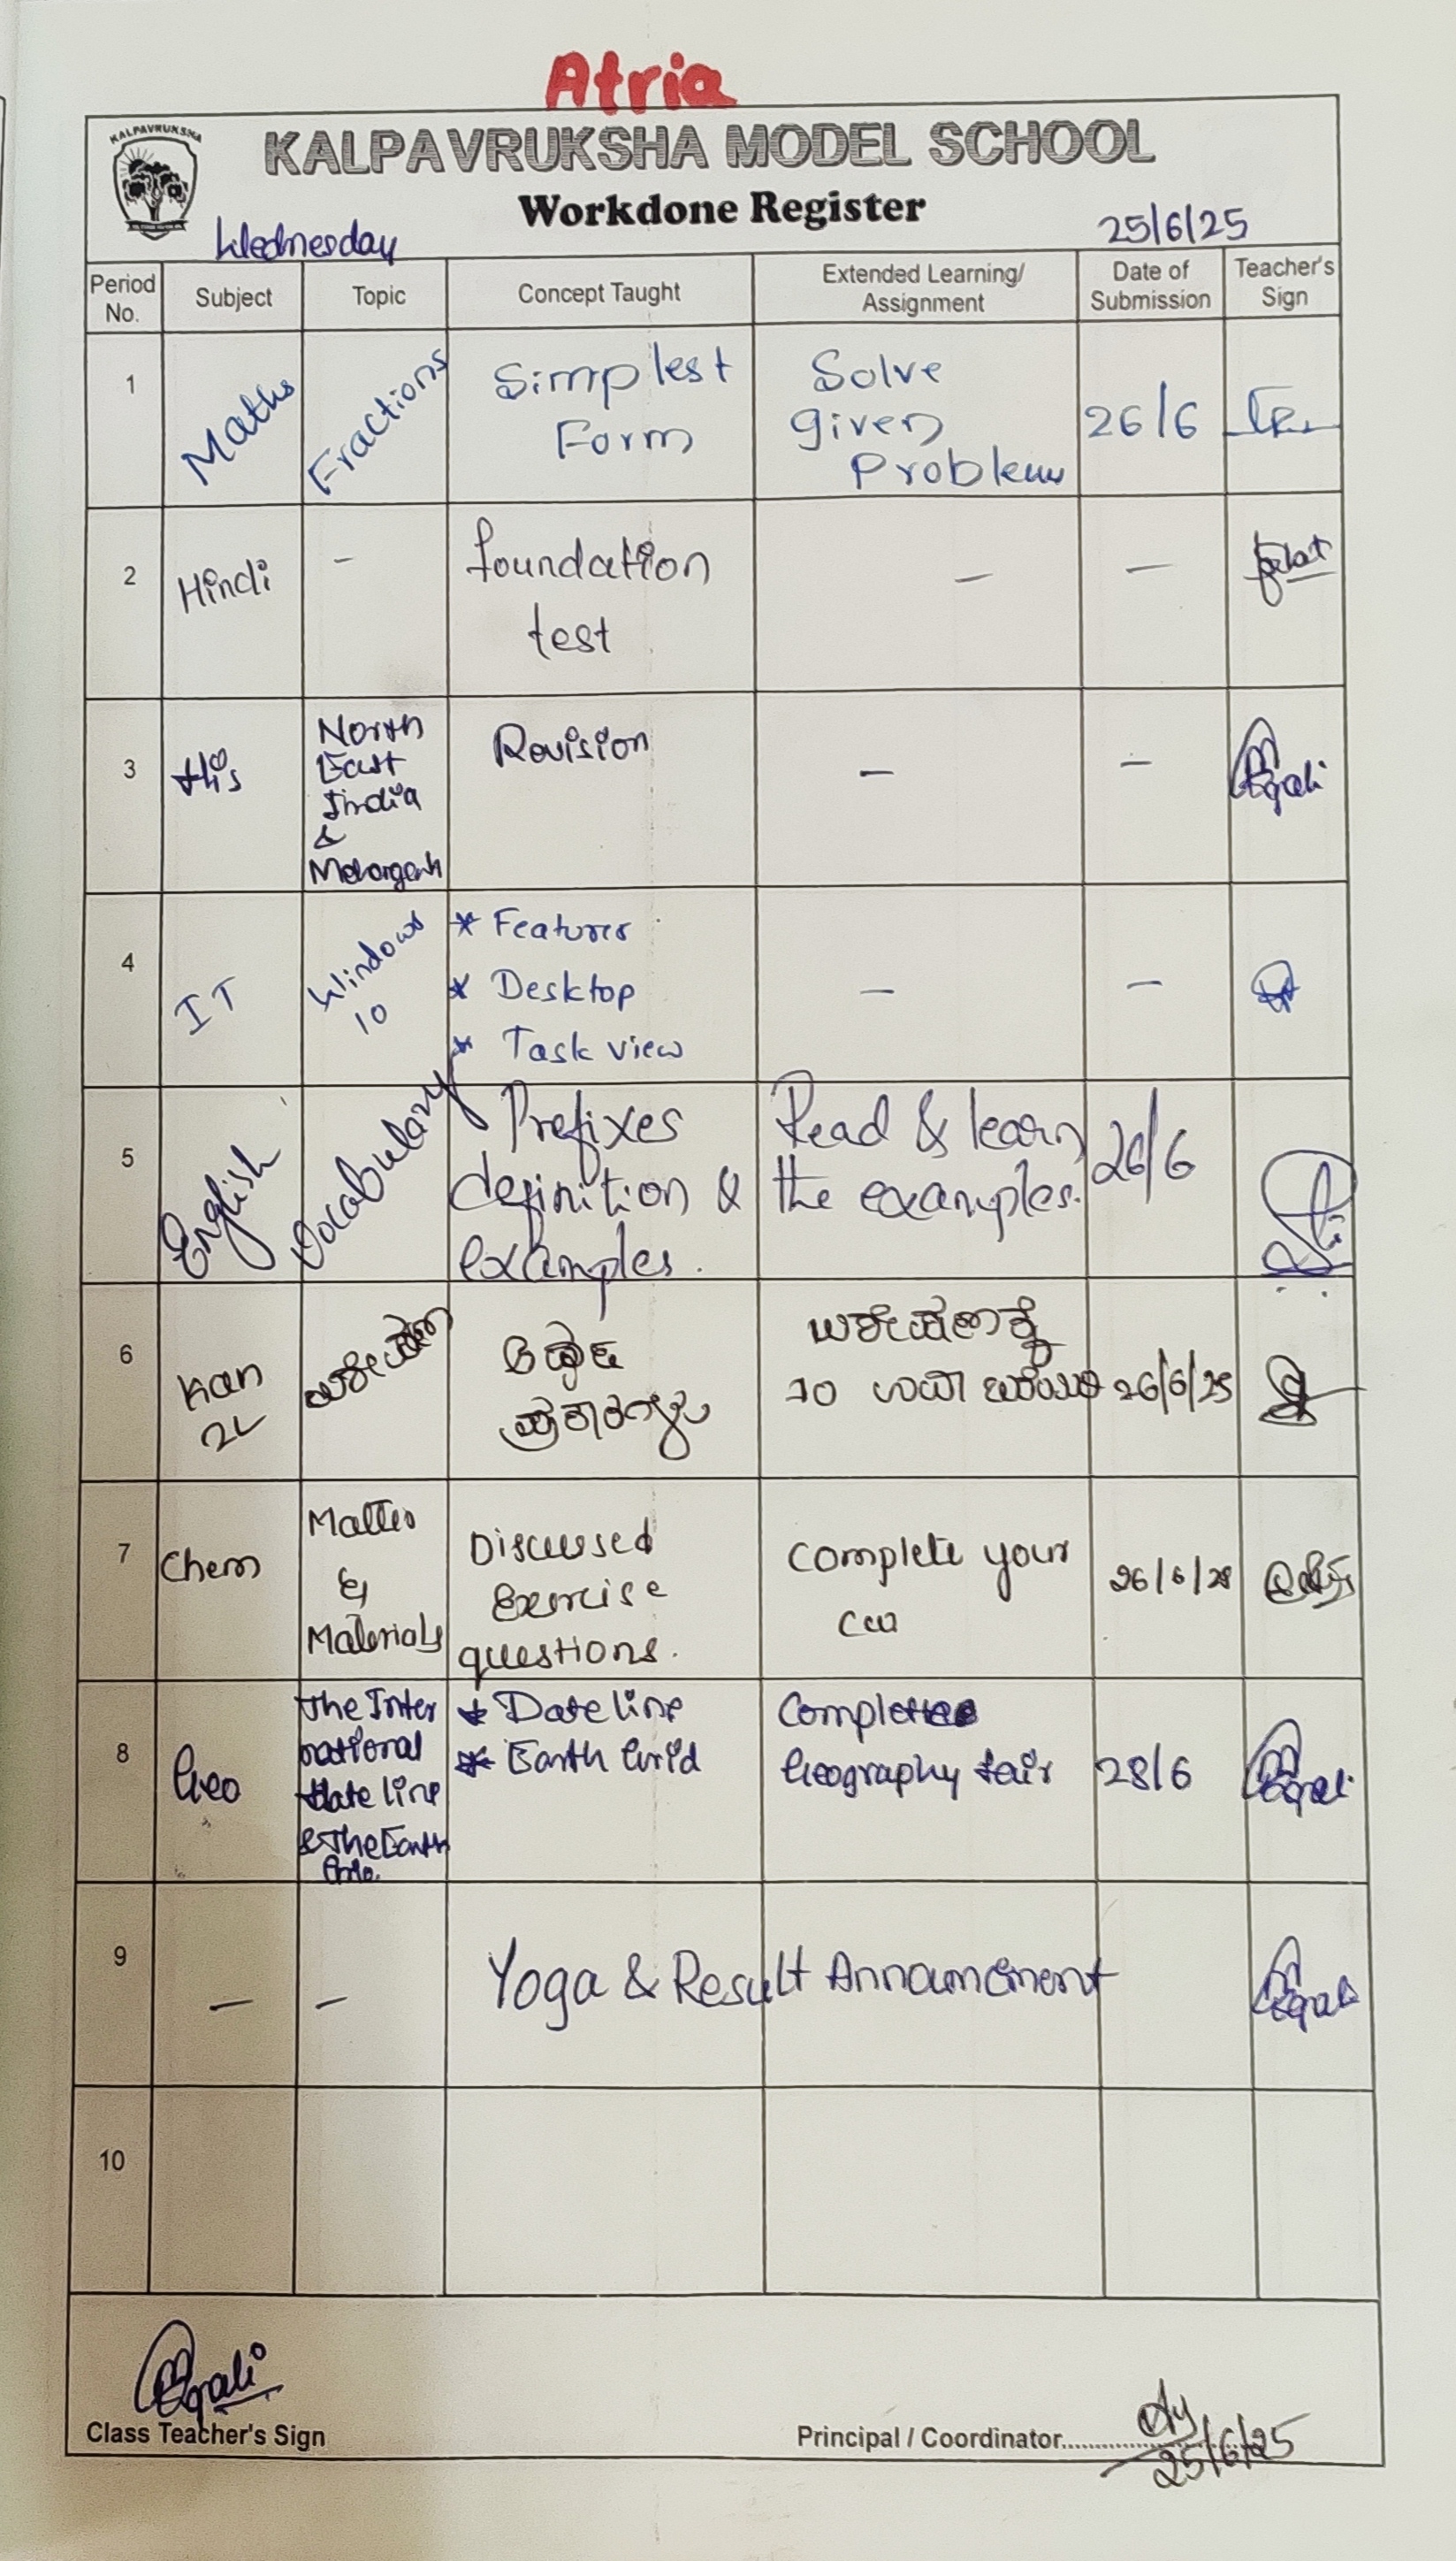 Atria
KALPAVRUKSHA
KALPAVRUKSHA MODEL SCHOOL
Workdone Register
Wednesday
25/6/25
Period No.
Subject
Topic
Concept Taught
Extended Learning/
Assignment
Date of
Submission
Teacher's
Sign
1
Maths
Fractions
Simplest
Form
Solve
given
Problems
26/6
2
Hindi
-
foundation
test
-
-
3
His
North
East
India
&
Revision
-
-
4
IT
Windows
10
* Features
* Desktop
* Task view
-
-
5
English
Vocabulary
Prefixes
definition &
examples.
Read & learn
the examples.
26/6
6
Kan
2L
26/6/25
7
Chem
Matter
&
Materials
Discussed
Exercise
questions.
Complete your
CW
26/6/25
8
Geo
The Inter
national
date line
& The Earth
* Date line
* Earth Grid
Complete
Geography fair
28/6
9
-
-
Yoga & Result Announcement
10
Class Teacher's Sign
Principal / Coordinator
25/6/25